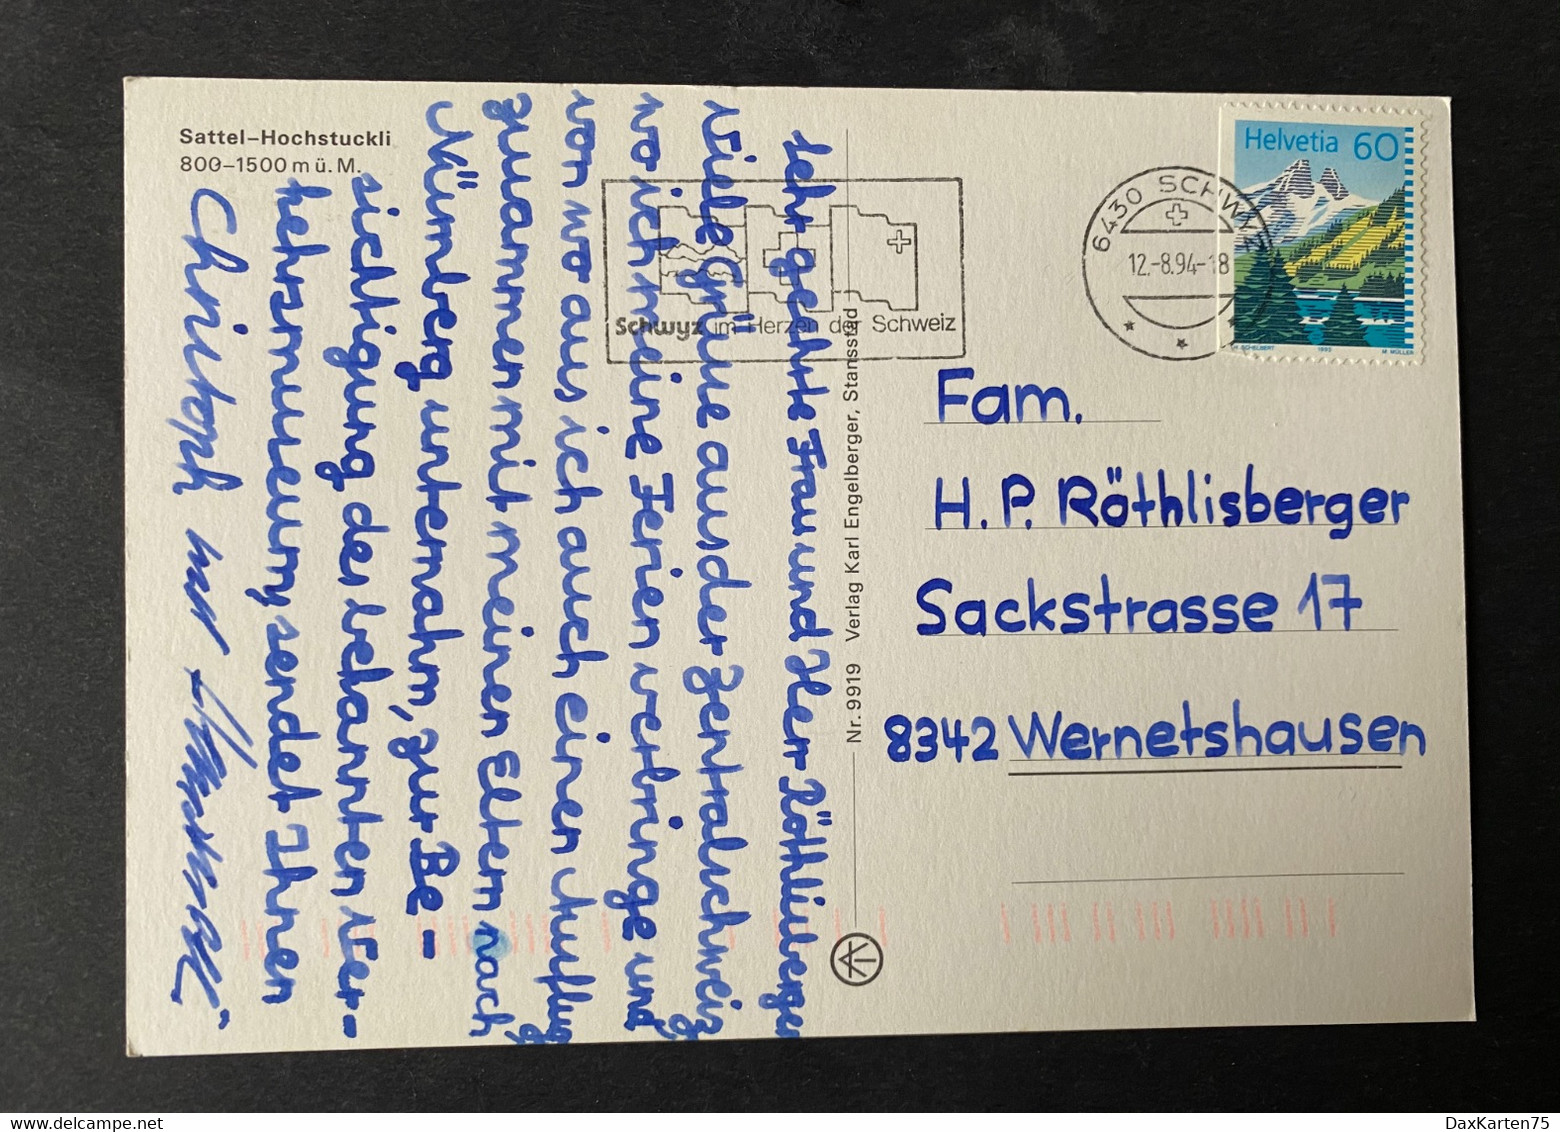 Sattel–Hochstuckli
800–1500 m ü. M.
Sehr geehrte Frau und Herr Röthlisberger
Viele Grüße aus der Zentralschweiz
wo ich meine Ferien verbringe und
von wo aus ich auch einen Ausflug
zusammen mit meinen Eltern nach
Nürnberg unternahm, zur Be-
sichtigung des bekannten Ver-
kehrsmuseums sendet Ihnen
Christoph
Nr. 9919 Verlag Karl Engelberger, Stansstad
Schwyz im Herzen der Schweiz
6430 SCHWYZ
12.-8.94-18
Helvetia 60
1993
M. MÜLLER
Fam.
H. P. Röthlisberger
Sackstrasse 17
8342 Wernetshausen
DaxKarten75